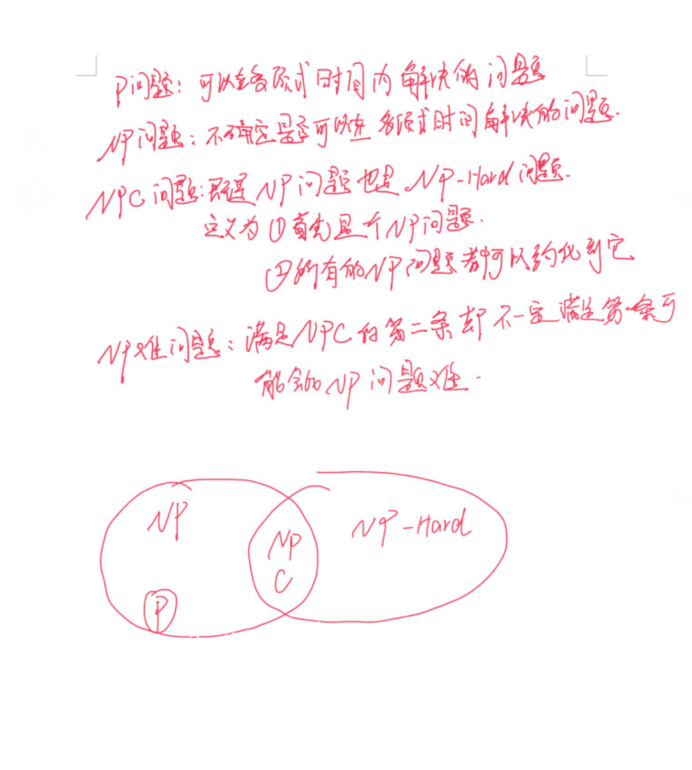 P问题：可以在多项式时间内解决的问题
NP问题：不确定是否可以在多项式时间解决的问题.
NPC问题：既是NP问题也是NP-Hard问题.
定义为①首先是个NP问题.
②所有的NP问题都可以约化到它
NP难问题：满足NPC的第二条却不一定满足第一条可
能会比NP问题难.
NP
NP
C
NP-Hard
P